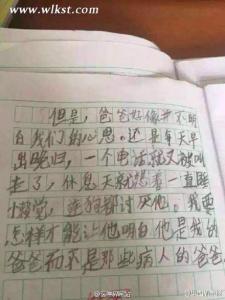 www.wlkst.com
但是，爸爸好像并不明
白我们的心思。还是每天早
出晚归，一个电话就又被叫
走了，休息天就想着一直睡
小被觉，连狗都讨厌他。我要
怎样才能让他明白他是我的
爸爸而不是那些病人的爸爸